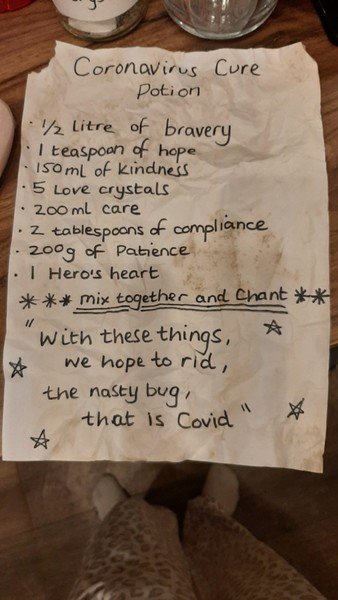 Coronavirus Cure
Potion
· 1/2 litre of bravery
· 1 teaspoon of hope
· 150ml of kindness
· 5 Love crystals
· 200ml care
· 2 tablespoons of compliance
· 200g of Patience
· 1 Hero's heart
*** mix together and Chant **
"With these things,
we hope to rid,
the nasty bug,
that is Covid"